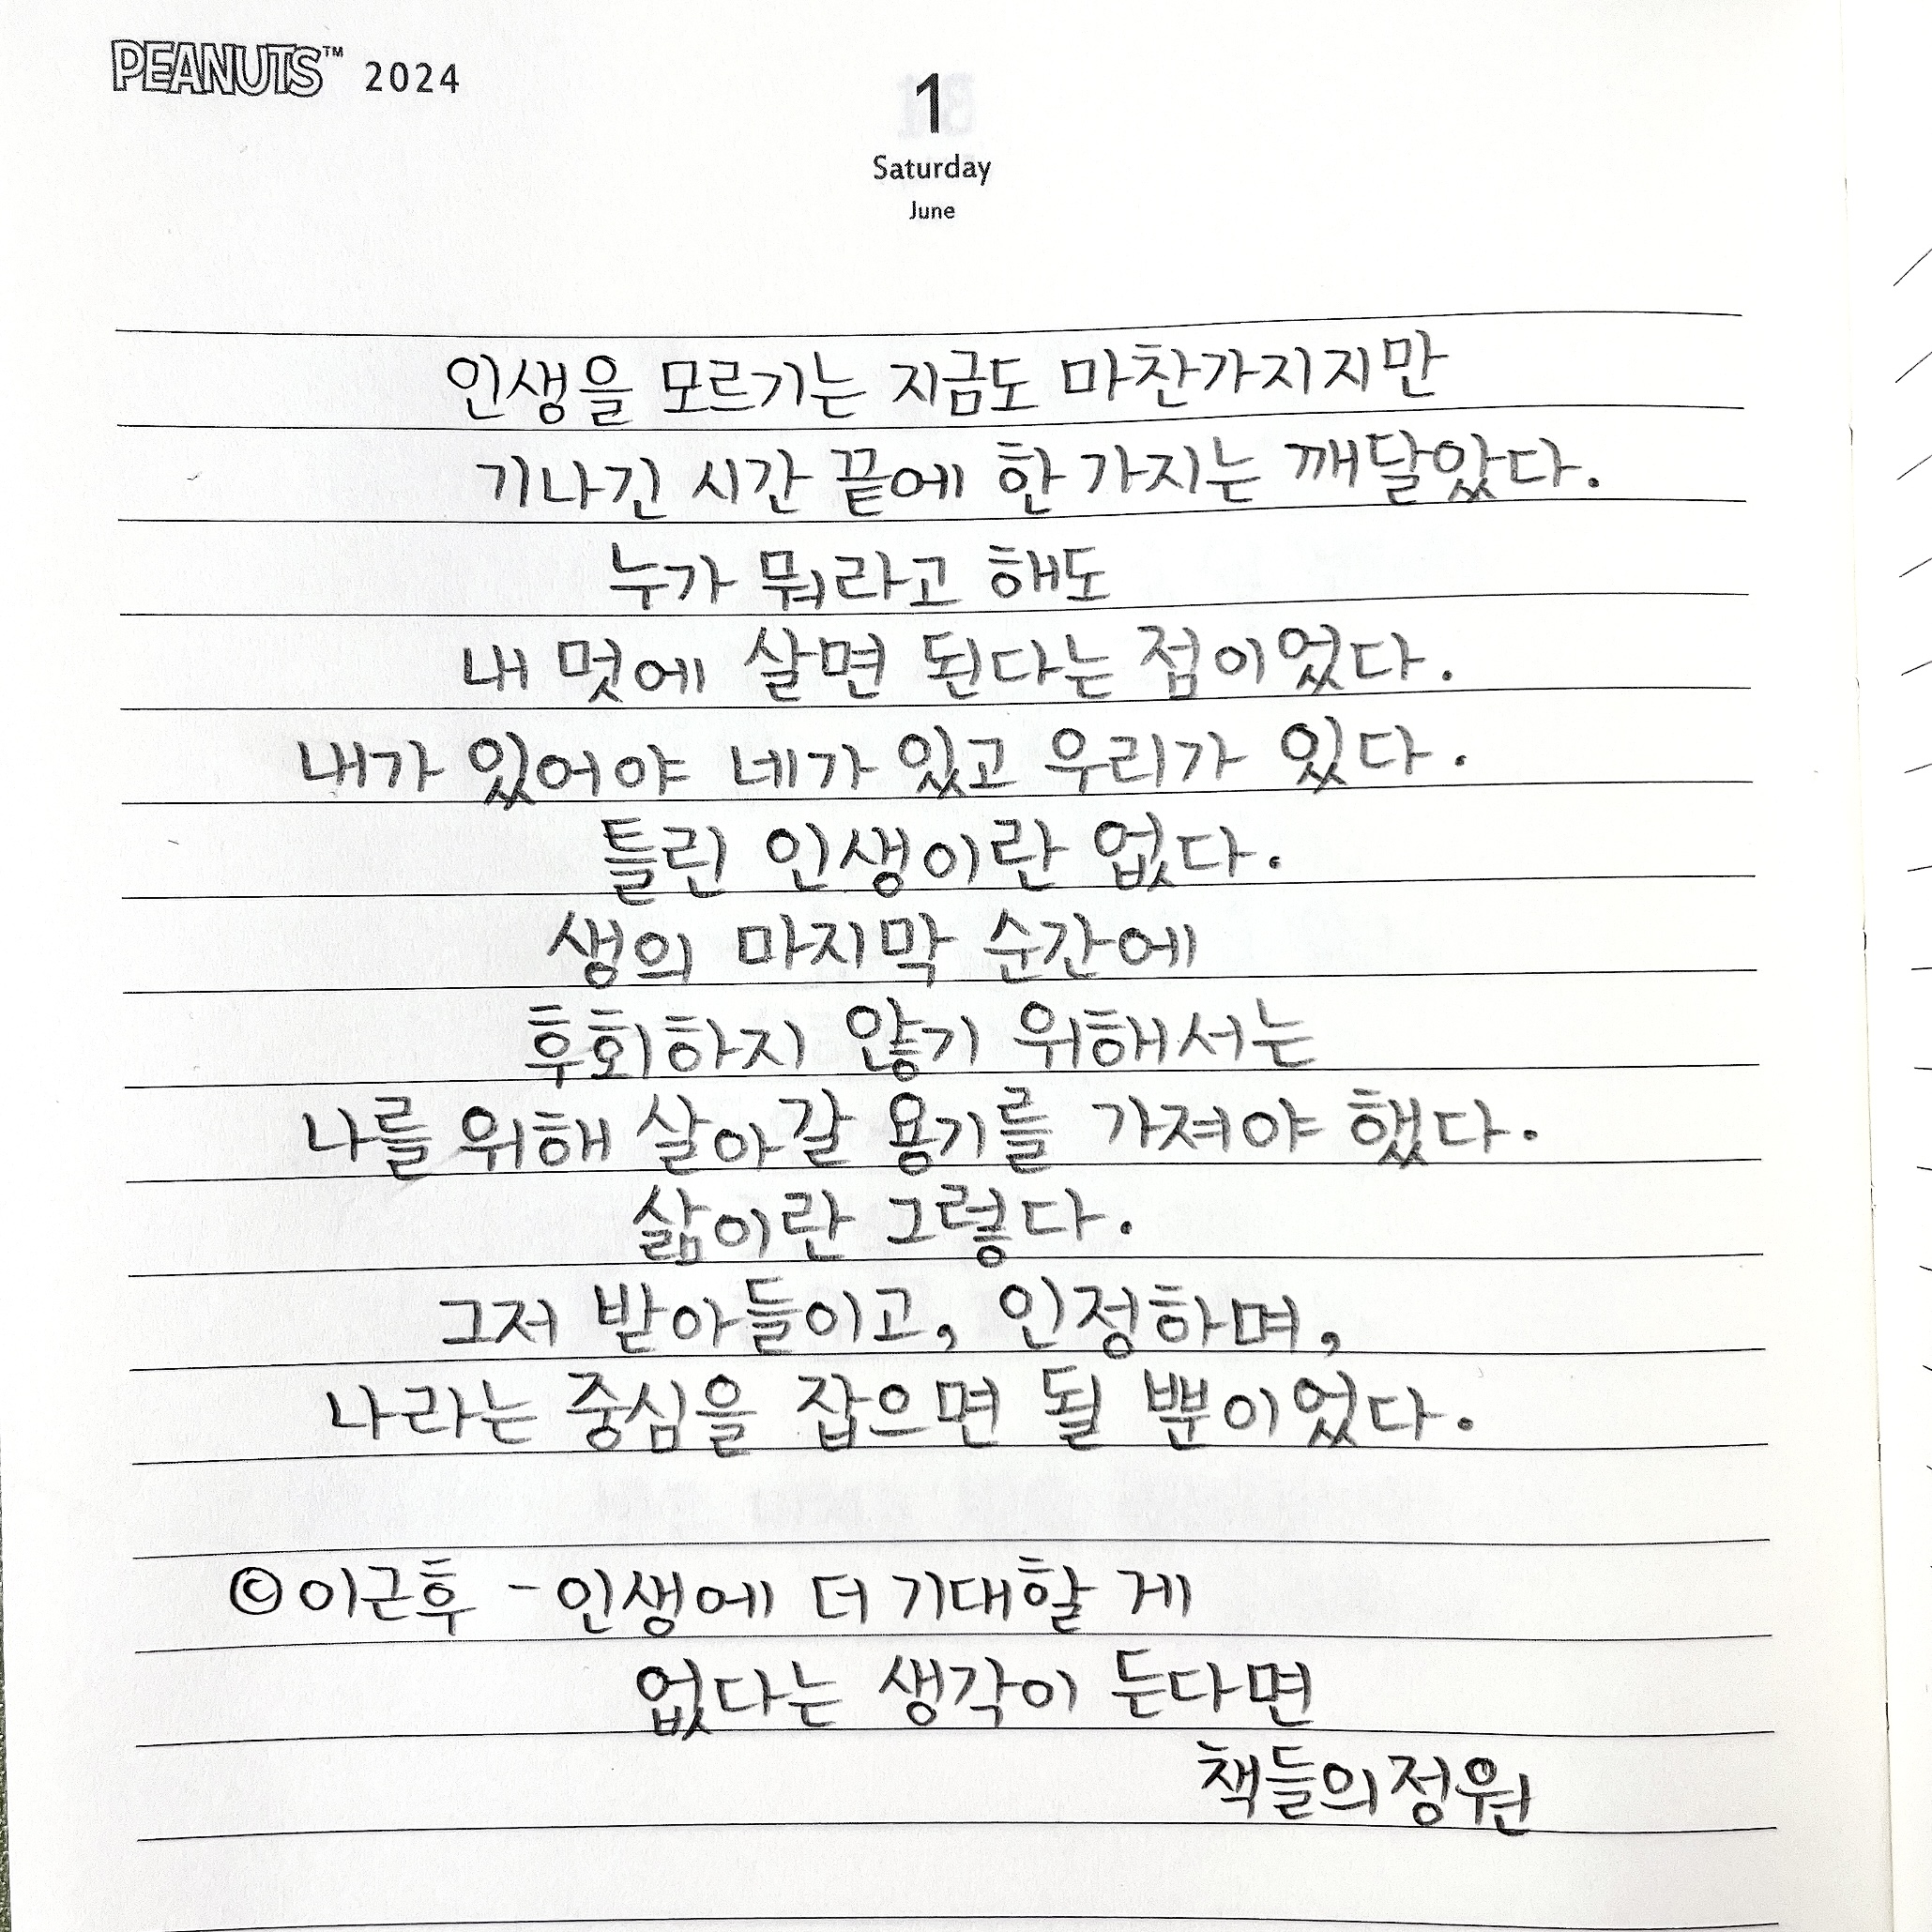 PEANUTS™ 2024
1
Saturday
June
인생을 모르기는 지금도 마찬가지지만
기나긴 시간 끝에 한 가지는 깨달았다.
누가 뭐라고 해도
내 멋에 살면 된다는 점이었다.
내가 있어야 네가 있고 우리가 있다.
틀린 인생이란 없다.
생의 마지막 순간에
후회하지 않기 위해서는
나를 위해 살아갈 용기를 가져야 했다.
삶이란 그렇다.
그저 받아들이고, 인정하며,
나라는 중심을 잡으면 될 뿐이었다.
©이근후 - 인생에 더 기대할 게
없다는 생각이 든다면
책들의정원